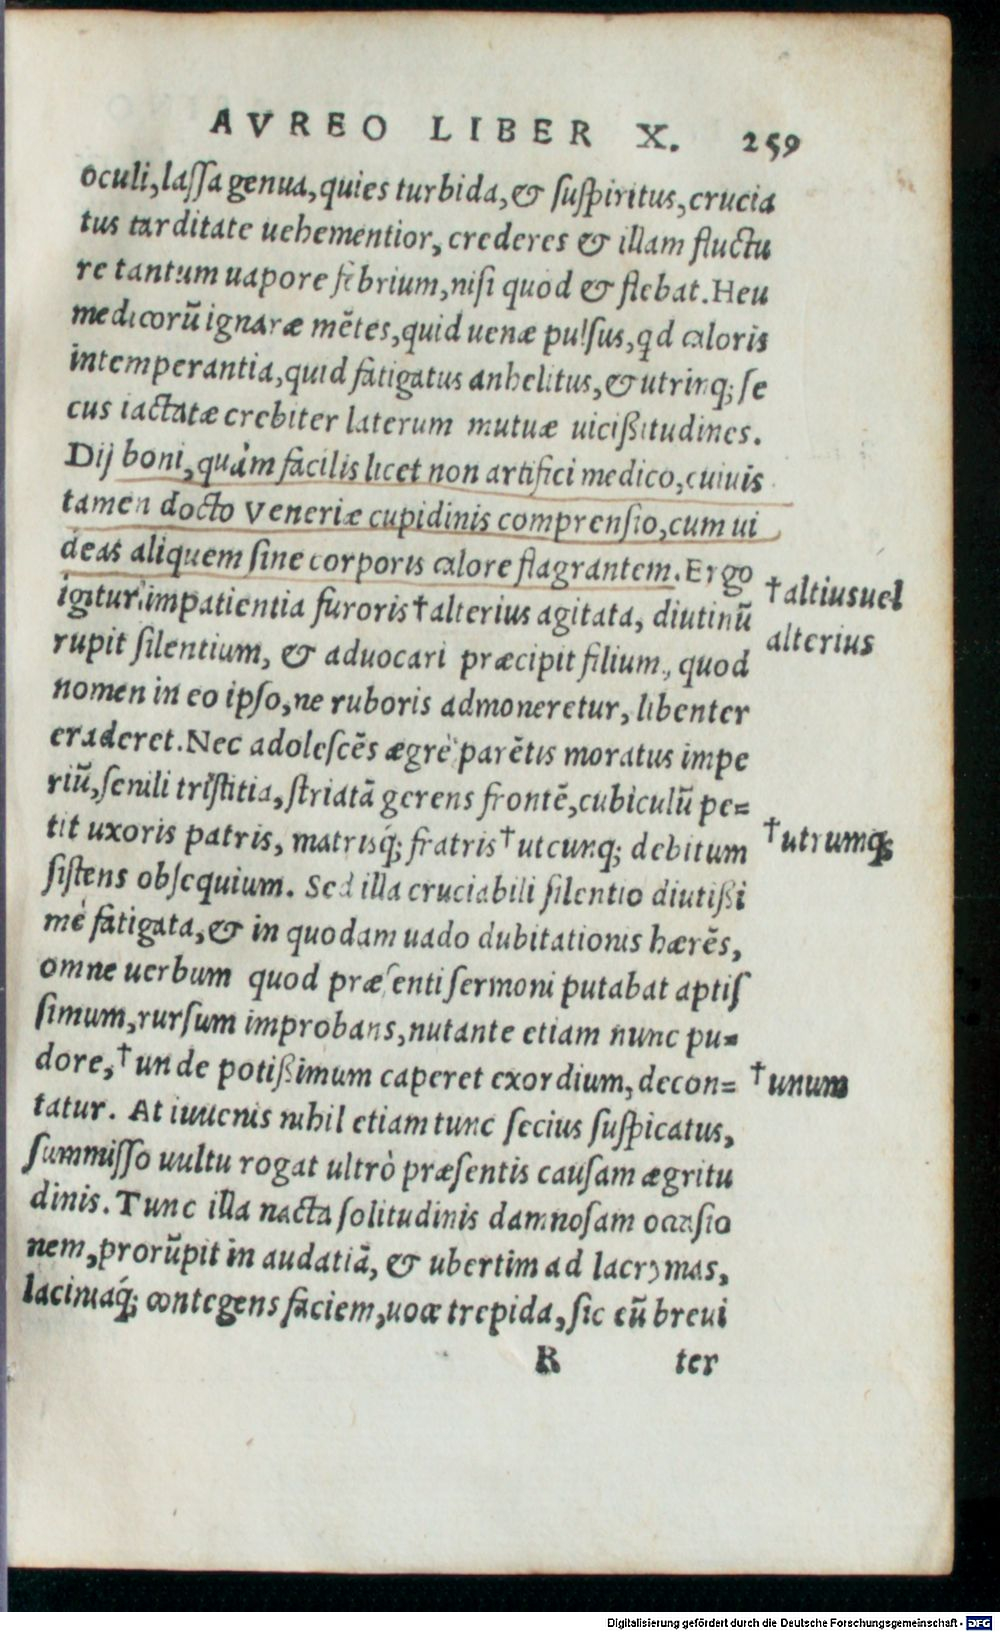 AVREO LIBER X. 259
oculi, lassa genua, quies turbida, & suspiritus, crucia
tus tarditate uehementior, crederes & illam fluctu
re tantum uapore febrium, nisi quod & flebat. Heu
medicorũ ignaræ mẽtes, quid uenæ pulsus, qd caloris
intemperantia, quid fatigatus anhelitus, & utrinq; se
cus iactatæ crebiter laterum mutuæ uicißitudines.
Dij boni, quàm facilis licet non artifici medico, cuiuis
tamen docto Veneriæ cupidinis comprensio, cum ui
deas aliquem sine corporis calore flagrantem. Ergo
igitur impatientia furoris † alterius agitata, diutinũ
†altius uel
rupit silentium, & aduocari præcipit filium, quod
alterius
nomen in eo ipso, ne ruboris admoneretur, libenter
eraderet. Nec adolescẽs ægrè parẽtis moratus impe
riũ, senili tristitia, striatã gerens frontẽ, cubiculũ pe=
tit uxoris patris, matrisq́; fratris † utcunq; debitum
†utrumq;
sistens obsequium. Sed illa cruciabili silentio diutißi
mè fatigata, & in quodam uado dubitationis hærẽs,
omne uerbum quod præsenti sermoni putabat aptis
simum, rursum improbans, nutante etiam nunc pu=
dore, † unde potißimum caperet exordium, decon=
†unum
tatur. At iuuenis nihil etiam tunc secius suspicatus,
summisso uultu rogat ultrò præsentis causam ægritu
dinis. Tunc illa nacta solitudinis damnosam occasio
nem, prorũpit in audatiã, & ubertim ad lacrymas,
laciniaq́; contegens faciem, uoce trepida, sic eũ breui
R ter
Digitalisierung gefördert durch die Deutsche Forschungsgemeinschaft - DFG